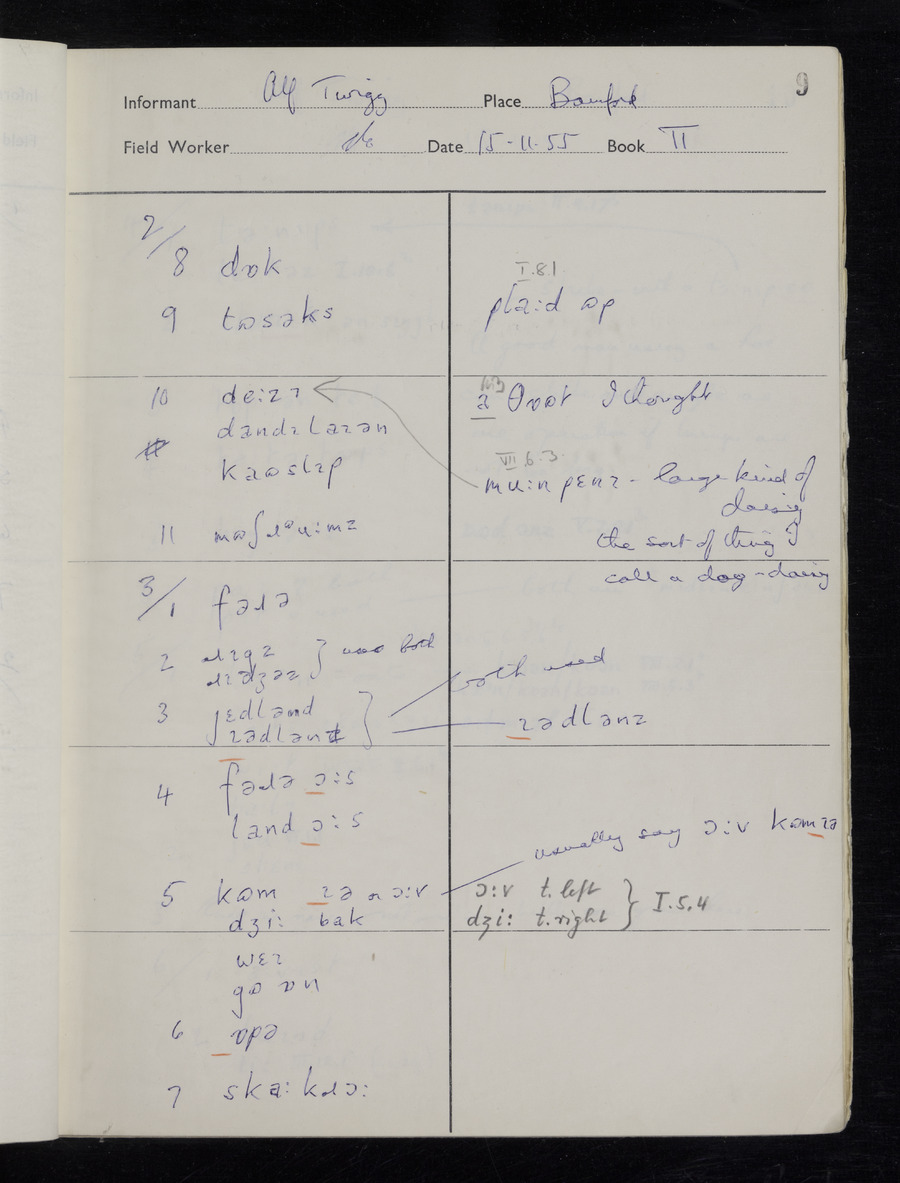 9
Informant Alf Twigg Place Bamford
Field Worker Date 15-11-55 Book II
2/8 dɒk
I.8.1
9 tʊsəks
plaːd ʊp
10 deːzɪ
θɒʊt I thought
dandɪlaɪən
kaʊslɪp
VII 6.3.
muːn penɪ - large kind of daisy
11
the sort of thing I
call a dog-daisy
3/1 fəɹə
2 } uses both
3 ʃɛdland } both used
ɪədlanz
4 fəɹə ɔːs
land ɔːs
usually say ɔːv kʊm ɪə
5 kʊm ɪə n ɔːv
dʒiː bak
ɔːv t. left } I.5.4
dʒiː t. right
gʊ ɒn
6 ɒpə
7